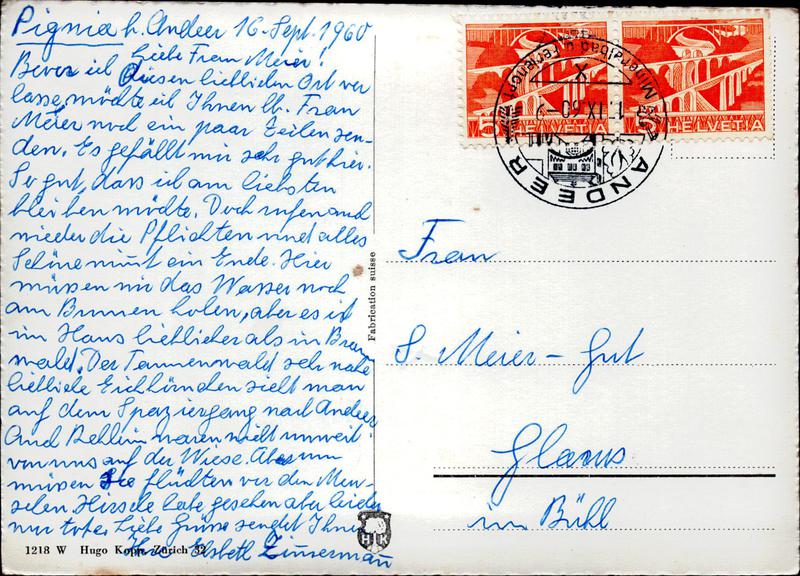 Pignia b. Andeer 16. Sept. 1960
Liebe Frau Meier!
Bevor ich diesen lieblichen Ort ver
lasse, möchte ich Ihnen lb. Frau
Meier noch ein paar Zeilen sen-
den. Es gefällt mir sehr gut hier.
So gut, dass ich am liebsten
bleiben möchte. Doch rufen auch
wieder die Pflichten und alles
Schöne nimmt ein Ende. Hier
müssen wir das Wasser noch
am Brunnen holen, aber es ist
im Haus lieblicher als in Braun
wald. Der Tannenwald sehr nahe
liebliche Eichhörnchen sieht man
auf dem Spaziergang nach Andeer
Und Rehlein waren nicht unweit
von uns auf der Wiese. Aber nun
müssen sie flüchten vor den Men-
schen Hirsche habe gesehen aber leider
nur tote. Liebe Grüsse sendet Ihnen
Ihre Elsbeth Zimmermann
1218 W Hugo Kopp, Zürich 52
Fabrication suisse
HK
5 HELVETIA
5 HELVETIA
Mineralbad u. Ferienort
17.IX.60-9
ANDEER
Frau
S. Meier-Gut
Glarus
im Bühl